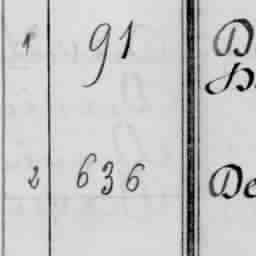 1 91
2 636 De